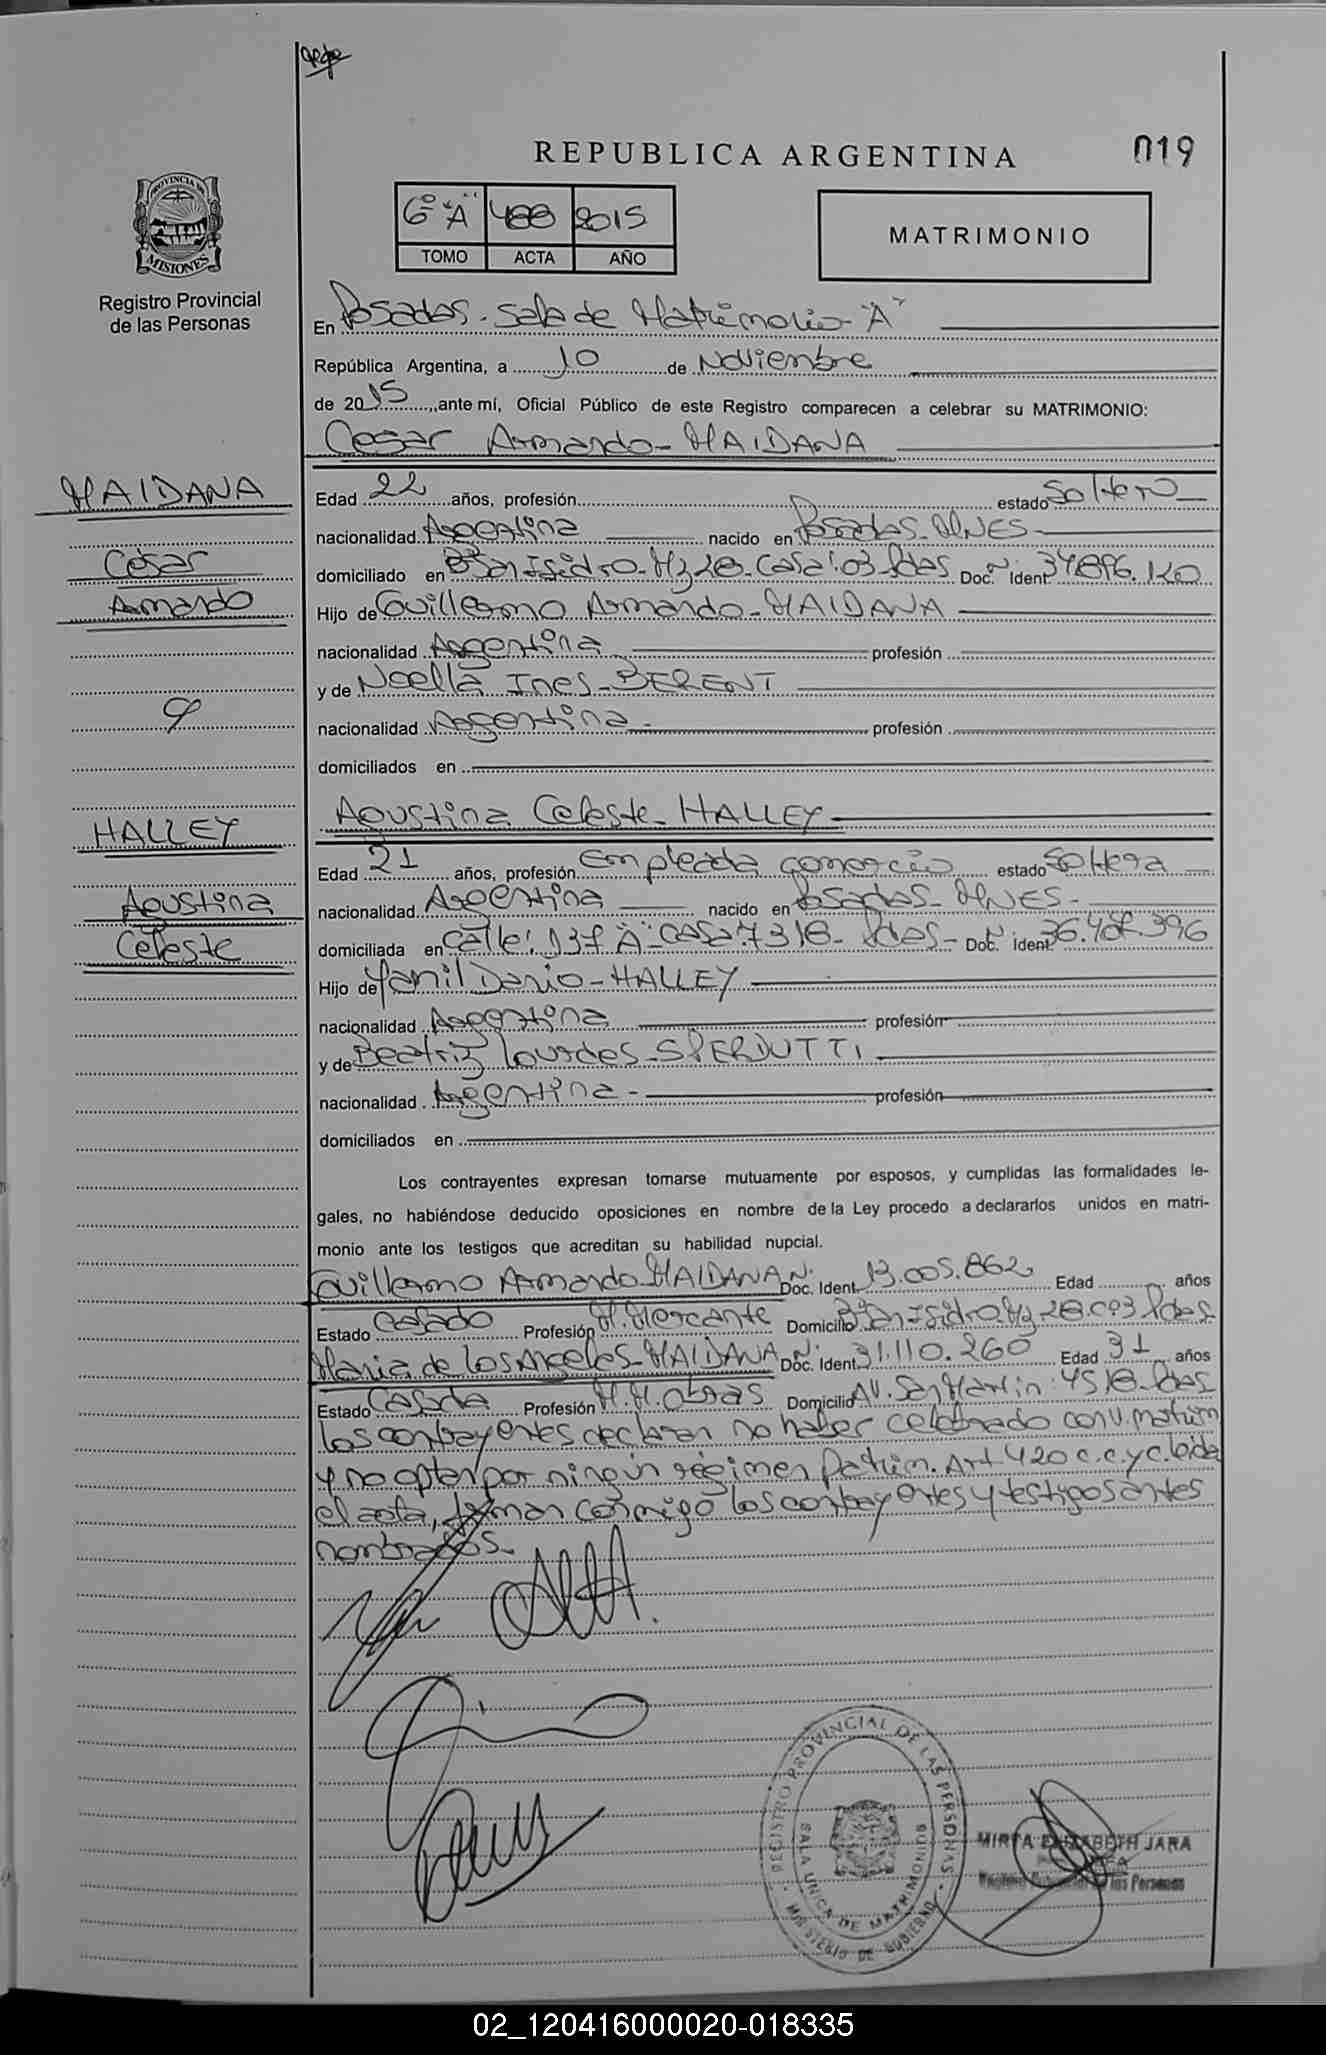 REPUBLICA ARGENTINA
019
PROVINCIA DE
MISIONES
Registro Provincial
de las Personas
6º "A" 488 2015
TOMO ACTA AÑO
MATRIMONIO
En Posadas - Sala de Matrimonio "A"
República Argentina, a 10 de Noviembre
de 2015, ante mí, Oficial Público de este Registro comparecen a celebrar su MATRIMONIO:
Cesar Armando - MAIDANA
MAIDANA
César
Armando
Edad 22 años, profesión estado Soltero
nacionalidad Argentina nacido en Posadas - MNES
domiciliado en Bº San Isidro - Mz 28 - Casa: 03 Pdas. Doc. Nº Ident 37.896.120
Hijo de Guillermo Armando - MAIDANA
nacionalidad Argentina profesión
y de Noelia Ines - BERENT
nacionalidad Argentina - profesión
domiciliados en
HALLEY
Agustina
Celeste
Agustina Celeste - HALLEY
Edad 21 años, profesión Empleada comercio estado Soltera
nacionalidad Argentina nacido en Posadas - MNES -
domiciliada en Calle: 137 A - casa: 7318 - Pdas - Doc. Nº Ident 36.407.396
Hijo de Yamil Dario - HALLEY
nacionalidad Argentina profesión
y de Beatriz Lourdes - SPERDUTTI
nacionalidad Argentina - profesión
domiciliados en
Los contrayentes expresan tomarse mutuamente por esposos, y cumplidas las formalidades le-
gales, no habiéndose deducido oposiciones en nombre de la Ley procedo a declararlos unidos en matri-
monio ante los testigos que acreditan su habilidad nupcial.
Guillermo Armando - MAIDANA Nº Doc. Ident. 13.005.862 Edad años
Estado Casado Profesión M. Mercante Domicilio Bº San Isidro Mz 28. C: 03 Pdas.
Maria de Los Angeles - MAIDANA Nº Doc. Ident. 31.110.260 Edad 31 años
Estado Casada Profesión M.M. Obras Domicilio AV. San Martin: 4518 - Pdas
los contrayentes declaran no haber celebrado conv. matrim
y no optan por ningun régimen Patrim. Art 420 c.c. y c. Leida
el acta, firman conmigo los contrayentes y testigos antes
nombrados.
REGISTRO PROVINCIAL DE LAS PERSONAS
SALA UNICA DE MATRIMONIOS
MINISTERIO DE GOBIERNO
MIRTA ELIZABETH JARA
Registro Provincial de las Personas
02_120416000020-018335